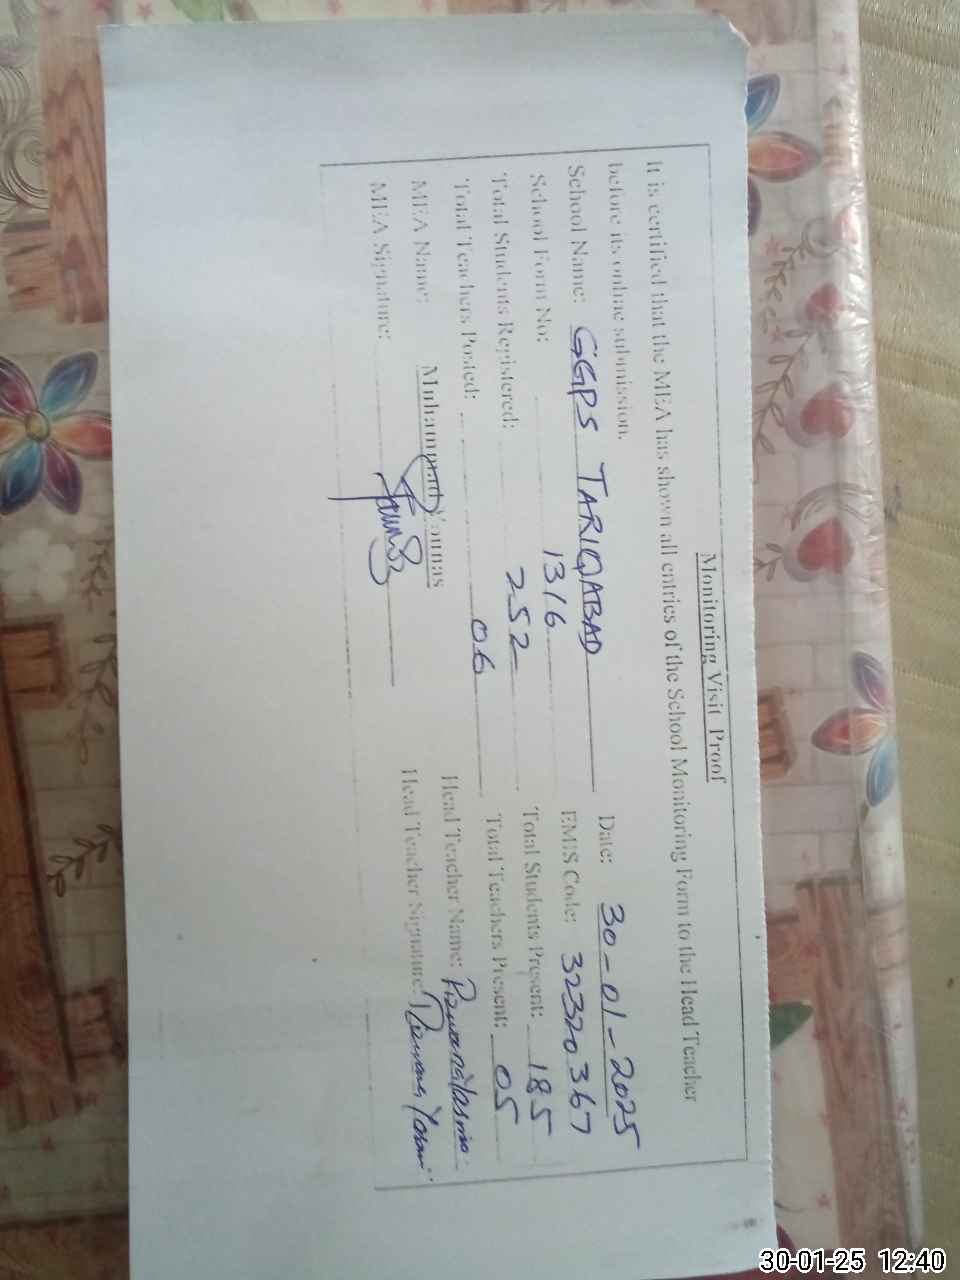 Monitoring Visit Proof
It is certified that the MEA has shown all entries of the School Monitoring Form to the Head Teacher
before its online submission.
School Name: GGPS TARIQABAD Date: 30-01-2025
School Form No: 1316 EMIS Code: 32320367
Total Students Registered: 252 Total Students Present: 185
Total Teachers Posted: 06 Total Teachers Present: 05
MEA Name: Muhammad Younas Head Teacher Name: Rizwana Yasmin
MEA Signature: Head Teacher Signature:
30-01-25 12:40